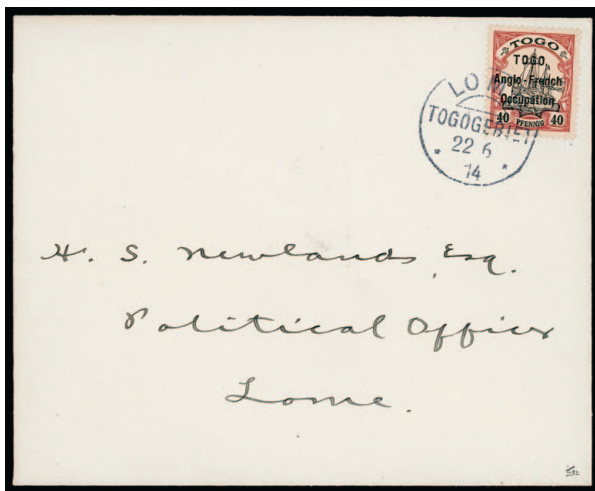 TOGO
TOGO
Anglo-French
Occupation
40 PFENNIG 40
LOME
TOGOGEBIET
* 22 6 *
14
H. S. Newlands, Esq.
Political Officer
Lome.